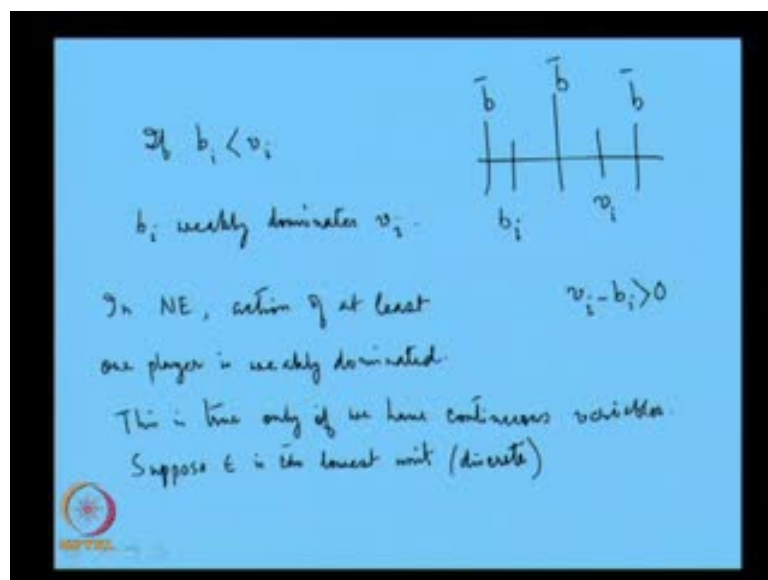 b̄ b̄ b̄
If b_i < v_i
b_i weakly dominates v_i.
b_i v_i
In NE, action of at least
v_i - b_i > 0
one player is weakly dominated.
This is true only if we have continuous variables.
Suppose ε is the lowest unit (discrete)
NPTEL